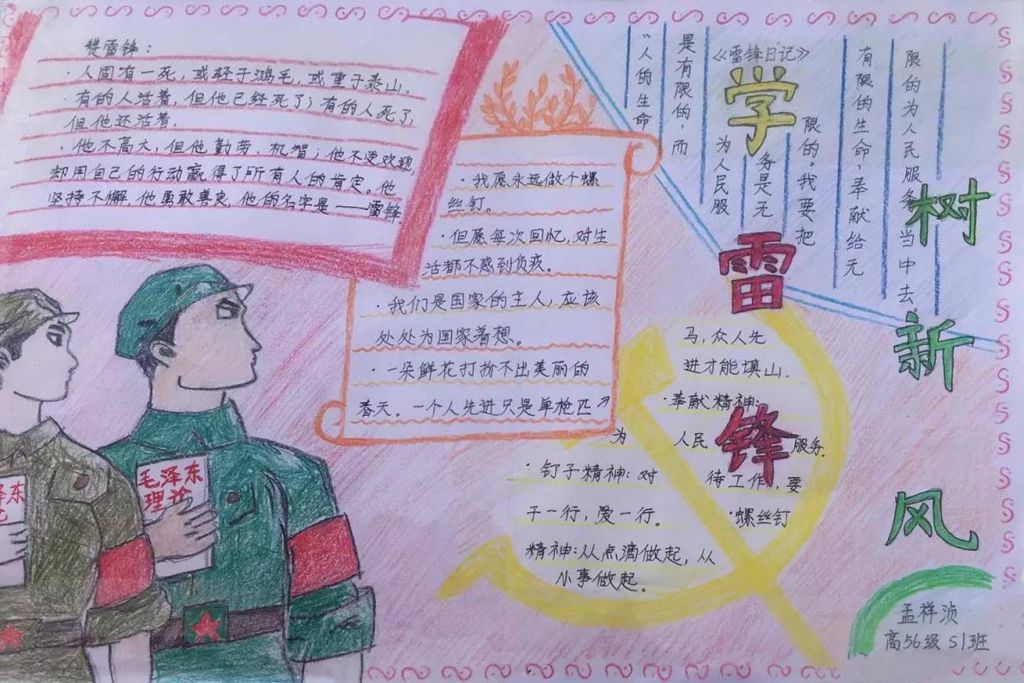 赞雷锋：
·人固有一死，或轻于鸿毛，或重于泰山。
·有的人活着，但他已经死了；有的人死了，
但他还活着．
·他不高大，但他勤劳．机智；他不受欢迎，
却用自己的行动赢得了所有人的肯定。他
坚持不懈，他勇敢善良，他的名字是——雷锋．
·我愿永远做个螺
丝钉。
·但愿每次回忆，对生
活都不感到负疚。
·我们是国家的主人，应该
处处为国家着想。
·一朵鲜花打扮不出美丽的
春天。一个人先进只是单枪匹
马，众人先
进才能填山．
·奉献精神：
为人民服务．
·钉子精神：对待工作，要
干一行，爱一行。
·螺丝钉
精神：从点滴做起，从
小事做起．
《雷锋日记》
“人的生命
是有限的，而
为人民服
务是无
限的。我要把
有限的生命，奉献给无
限的为人民服务当中去
学
雷
锋
树
新
风
毛泽东
理论
泽东
孟祥浈
高56级 S1班